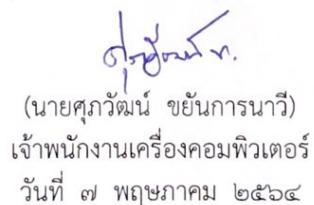 (นายศุภวัฒน์ ขยันการนาวี)
เจ้าพนักงานเครื่องคอมพิวเตอร์
วันที่ ๗ พฤษภาคม ๒๕๖๔